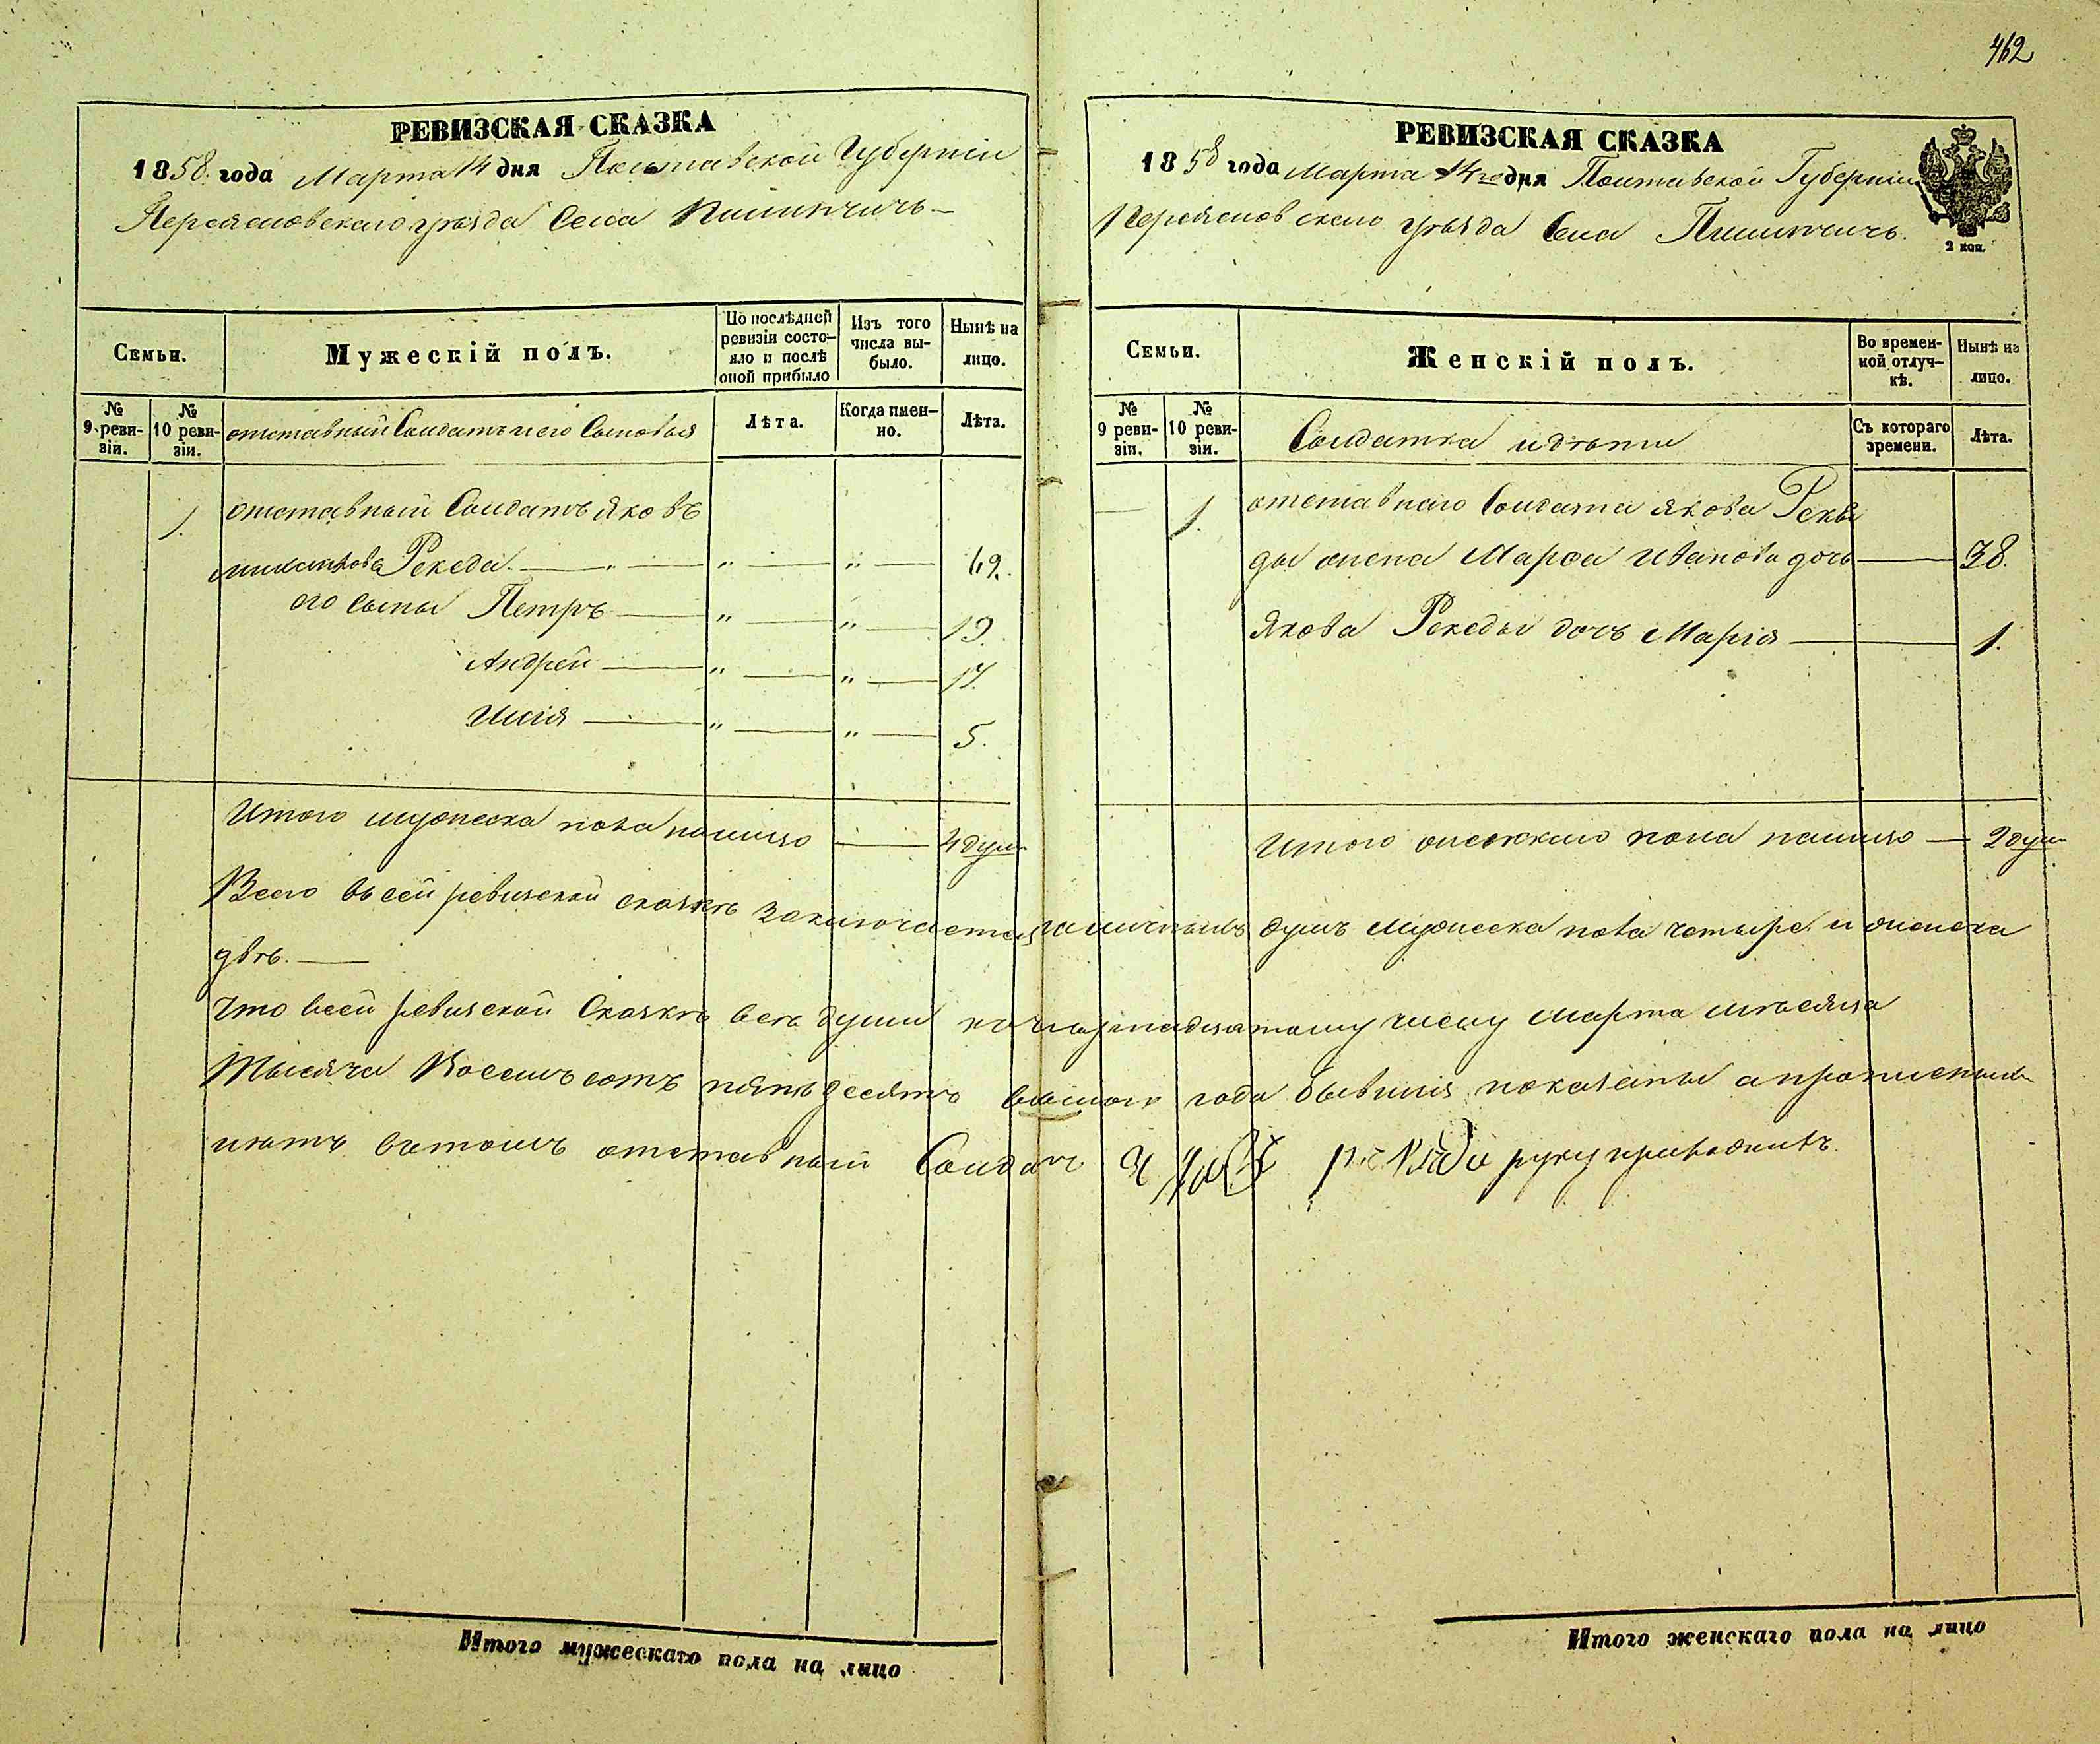 462
РЕВИЗСКАЯ СКАЗКА
1858 года Марта 14 дня Полтавской Губерніи
Переяславскаго уѣзда Села
Семьи.
Мужескій полъ.
По послѣдней ревизіи состояло и послѣ оной прибыло
Изъ того числа выбыло.
Нынѣ на лицо.
№ 9 ревизіи.
№ 10 ревизіи.
отставный Солдатъ и его Сыновья
Лѣта.
Когда именно.
Лѣта.
1. отставный Солдатъ Яковъ
Рекеда. — " — " — " —
его сыны Петръ — " — " — 19.
Андрей — " — " —
Илія — " — " — 5.
Итого мужеска пола налицо — 4 душ
РЕВИЗСКАЯ СКАЗКА
1858 года Марта 14го дня Полтавской Губерніи
Переяславскаго уѣзда Села
2 коп.
Семьи.
Женскій полъ.
Во временной отлучкѣ.
Нынѣ на лицо.
№ 9 ревизіи.
№ 10 ревизіи.
Солдатка и дѣти
Съ котораго времени.
Лѣта.
— 1. отставнаго Солдата Якова Реке
ды жена Марфа Иванова дочь — 38.
Якова Рекеды дочь Марія — 1.
Итого женскаго пола налицо — 2 душ
Всего въ сей ревизской сказкѣ заключается наличныхъ душъ мужеска пола четыре и женска
двѣ. —
Что всей ревизской Сказкѣ всѣ души по четырнадцатому числу Марта мѣсяца
Тысяча Восемъ сотъ пятьдесятъ года бывшія показаны а прописныхъ
нѣтъ въ томъ отставный Солдатъ руку приложилъ.
Итого мужескаго пола на лицо
Итого женскаго пола на лицо